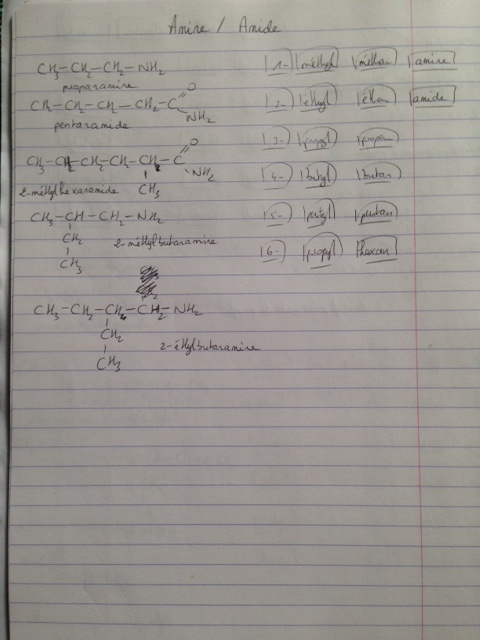 Amine / Amide
CH3-CH2-CH2-NH2
propanamine
CH3-CH2-CH2-CH2-C
O
NH2
pentanamide
CH3-CH2-CH2-CH2-CH2-C
O
NH2
CH3
2-méthylhexanamide
CH3-CH-CH2-NH2
CH2
CH3
2-méthylbutanamine
CH3-CH2-CH2-CH2-NH2
CH2
CH3
2-éthylbutanamine
1- méthyl méthan amine
2- éthyl éthan amide
3- propyl propan
4- butyl butan
5- pentyl pentan
6- propyl hexan